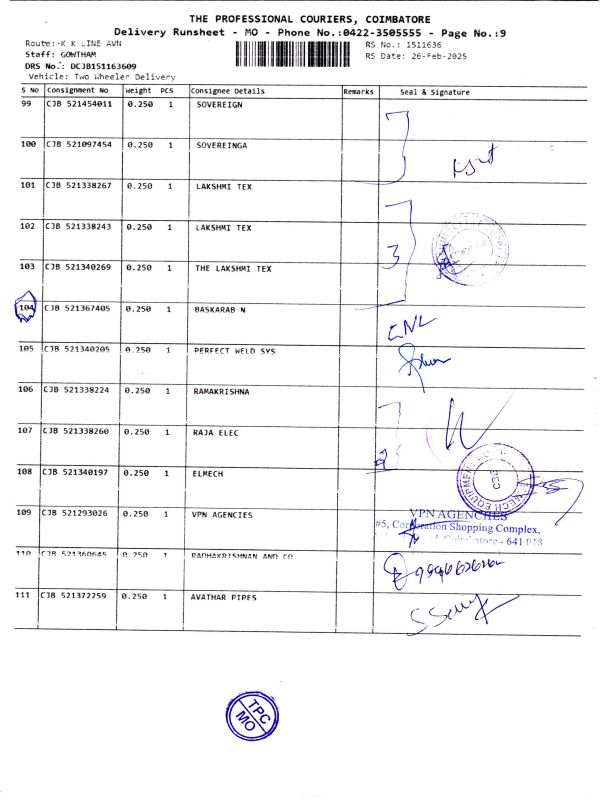 THE PROFESSIONAL COURIERS, COIMBATORE
Delivery Runsheet - MO - Phone No.:0422-3505555 - Page No.:9
Route: K K LINE AVN
RS No.: 1511636
Staff: GOWTHAM
RS Date: 26-Feb-2025
DRS No.: DCJB151163609
Vehicle: Two Wheeler Delivery
S No Consignment No Weight PCS Consignee Details Remarks Seal & Signature
99 CJB 521454011 0.250 1 SOVEREIGN
100 CJB 521097454 0.250 1 SOVEREINGA
101 CJB 521338267 0.250 1 LAKSHMI TEX
102 CJB 521338243 0.250 1 LAKSHMI TEX
3
103 CJB 521340269 0.250 1 THE LAKSHMI TEX
104 CJB 521367405 0.250 1 BASKARAB N
105 CJB 521340205 0.250 1 PERFECT WELD SYS
106 CJB 521338224 0.250 1 RAMAKRISHNA
107 CJB 521338260 0.250 1 RAJA ELEC
2
108 CJB 521340197 0.250 1 ELMECH
109 CJB 521293026 0.250 1 VPN AGENCIES
VPN AGENCIES
#5, Corporation Shopping Complex,
Coimbatore - 641 018
110 CJB 521360645 0.250 1 RADHAKRISHNAN AND CO
111 CJB 521372259 0.250 1 AVATHAR PIPES
TPC
MO